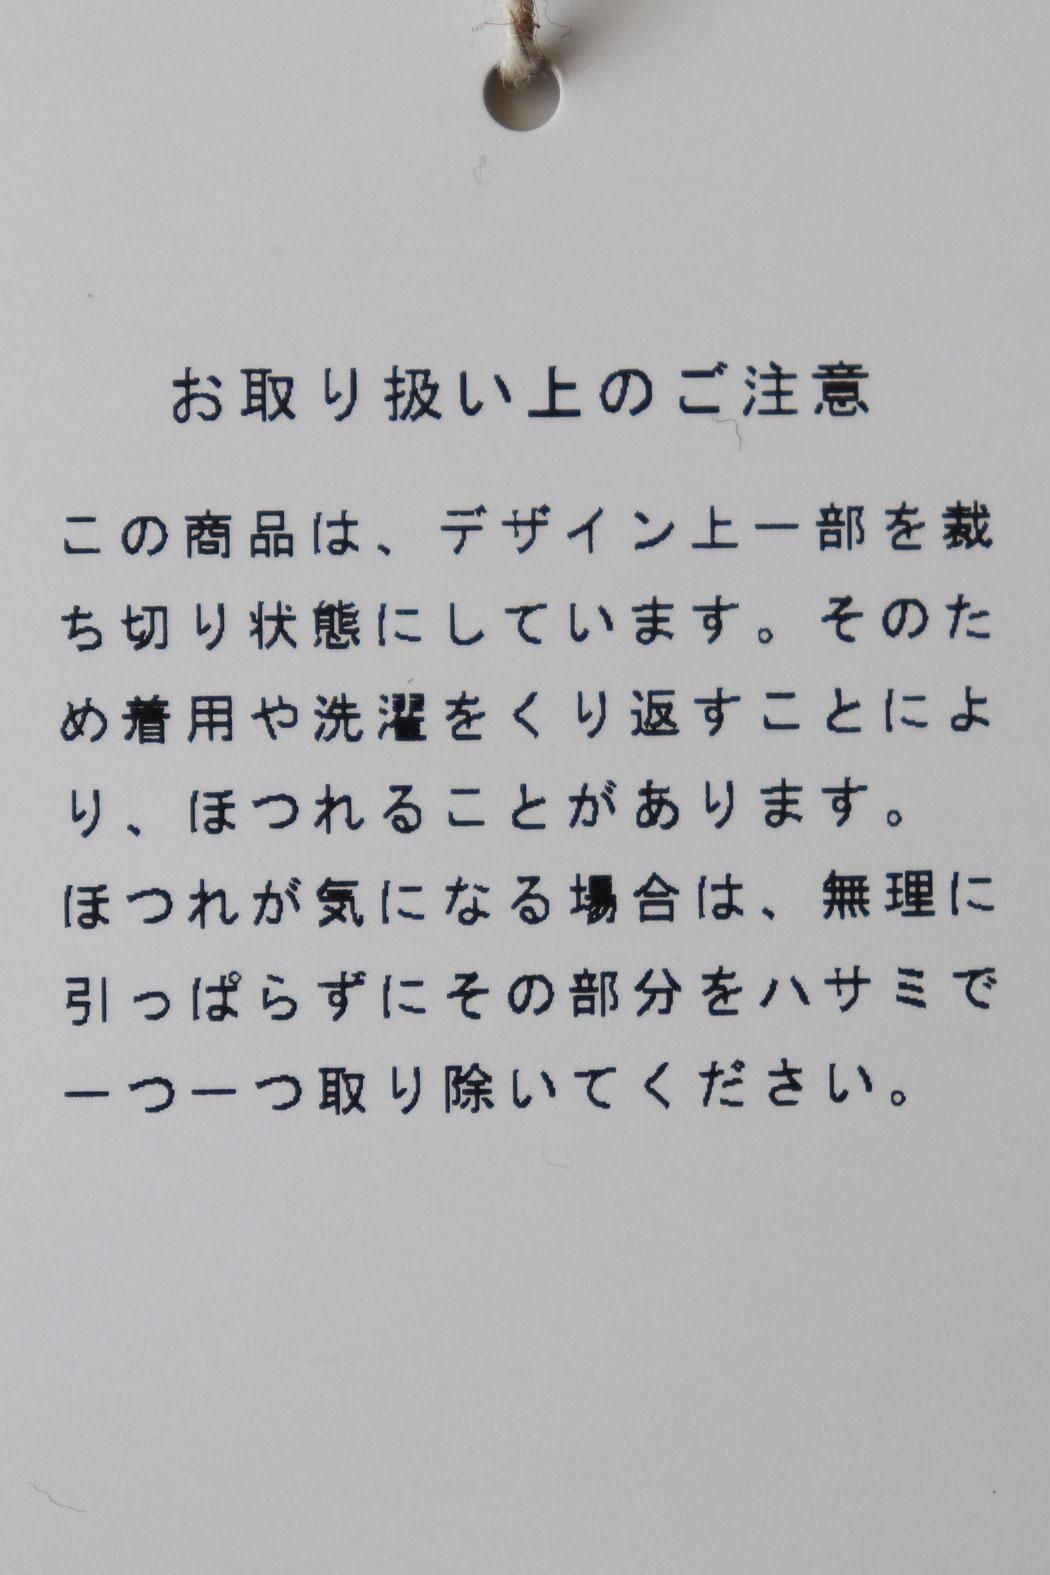 お取り扱い上のご注意
この商品は、デザイン上一部を裁
ち切り状態にしています。そのた
め着用や洗濯をくり返すことによ
り、ほつれることがあります。
ほつれが気になる場合は、無理に
引っぱらずにその部分をハサミで
一つ一つ取り除いてください。